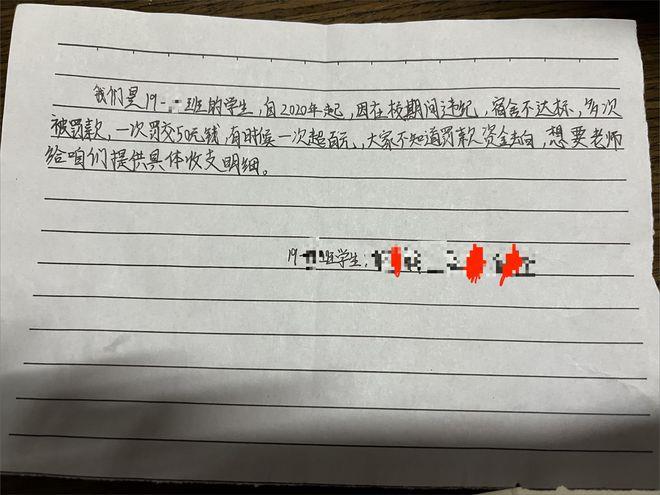 我们是19-班的学生，自2020年起，因在校期间违纪，宿舍不达标，多次
被罚款，一次罚交50元钱，有时候一次超百元，大家不知道罚款资金去向，想要老师
给咱们提供具体收支明细。
19-班学生：